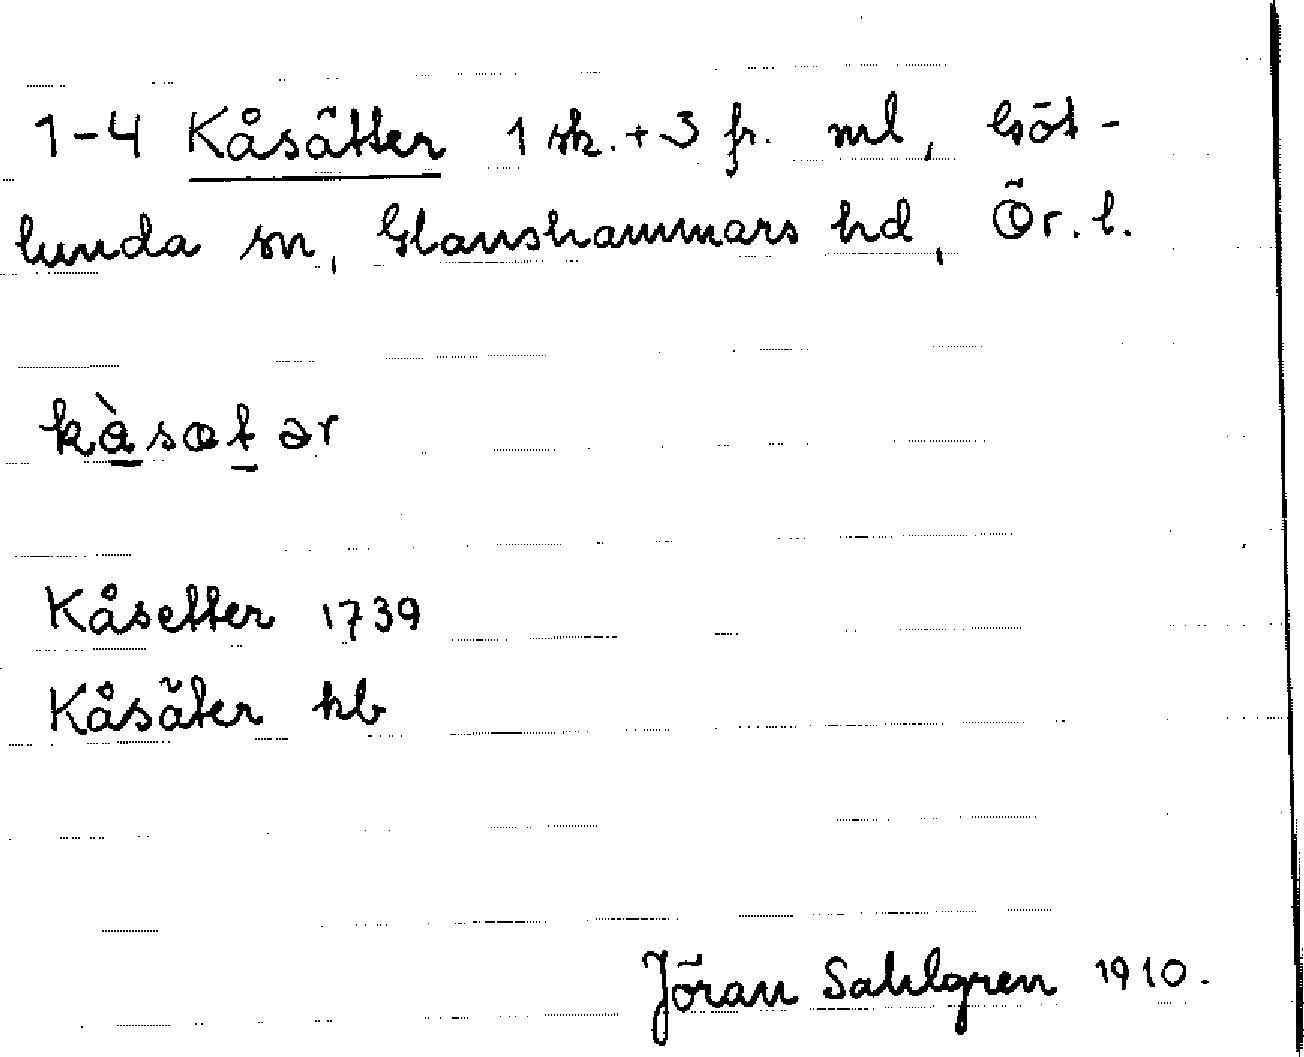 1-4 Kåsätter 1 sk. + 3 fr. ml, Göt-
lunda sn, Glanshammars hd, Ör. l.
kàsætər
Kåsetter 1739
Kåsäter kb
Jöran Sahlgren 1910.